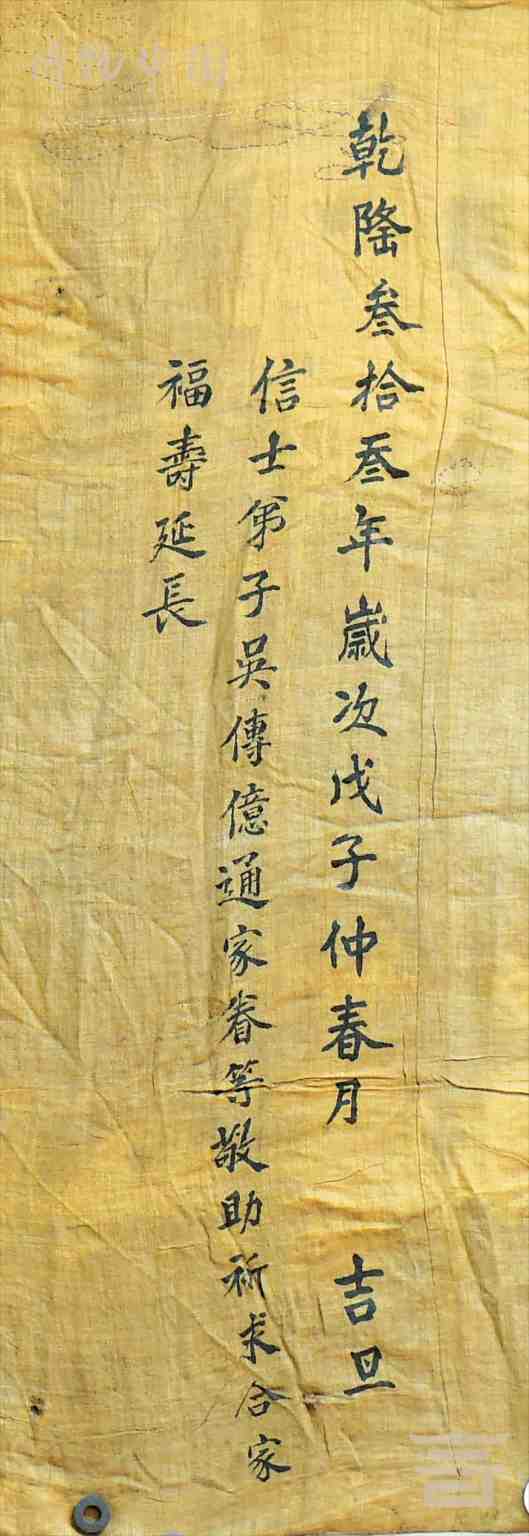 乾隆叁拾叁年歲次戊子仲春月 吉旦
信士弟子吳傳億通家眷等敬助祈求合家
福壽延長